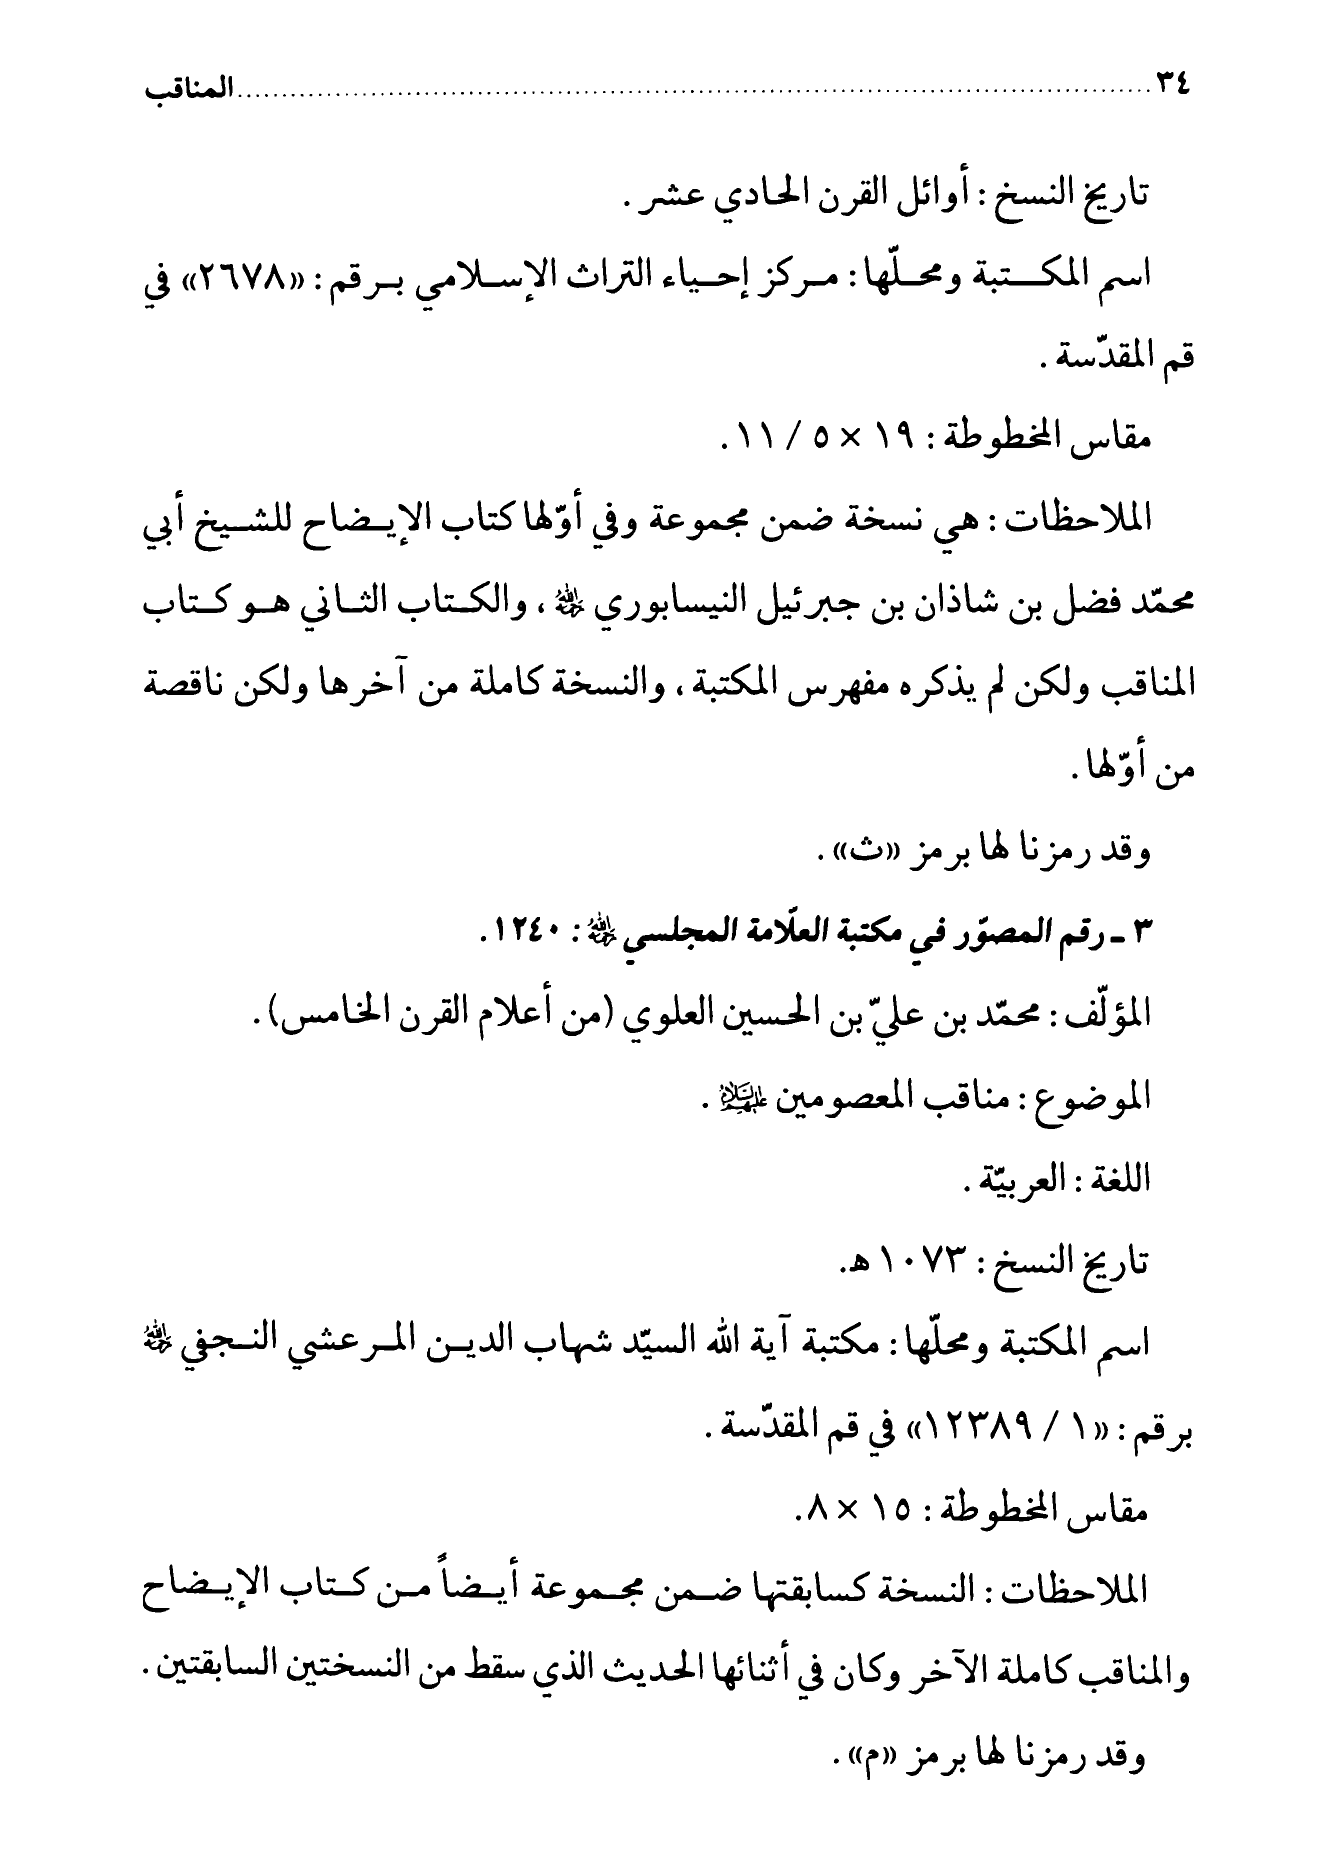 ٣٤ ........................................ المناقب
تاريخ النسخ : أوائل القرن الحادي عشر .
اسم المكتبة ومحلّها : مركز إحياء التراث الإسلامي برقم : «٢٦٧٨» في
قم المقدّسة .
مقاس المخطوطة : ١٩ × ٥ / ١١ .
الملاحظات : هي نسخة ضمن مجموعة وفي أوّلها كتاب الإيضاح للشيخ أبي
محمّد فضل بن شاذان بن جبرئيل النيسابوري رحمه الله ، والكتاب الثاني هو كتاب
المناقب ولكن لم يذكره مفهرس المكتبة ، والنسخة كاملة من آخرها ولكن ناقصة
من أوّلها .
وقد رمزنا لها برمز «ث» .
٣ ـ رقم المصوّر في مكتبة العلّامة المجلسي رحمه الله : ١٢٤٠ .
المؤلّف : محمّد بن عليّ بن الحسين العلوي (من أعلام القرن الخامس) .
الموضوع : مناقب المعصومين عليهم السلام .
اللغة : العربيّة .
تاريخ النسخ : ١٠٧٣ هـ.
اسم المكتبة ومحلّها : مكتبة آية الله السيّد شهاب الدين المرعشي النجفي رحمه الله
برقم : «١ / ١٢٣٨٩» في قم المقدّسة .
مقاس المخطوطة : ١٥ × ٨ .
الملاحظات : النسخة كسابقتها ضمن مجموعة أيضاً من كتاب الإيضاح
والمناقب كاملة الآخر وكان في أثنائها الحديث الذي سقط من النسختين السابقتين .
وقد رمزنا لها برمز «م» .